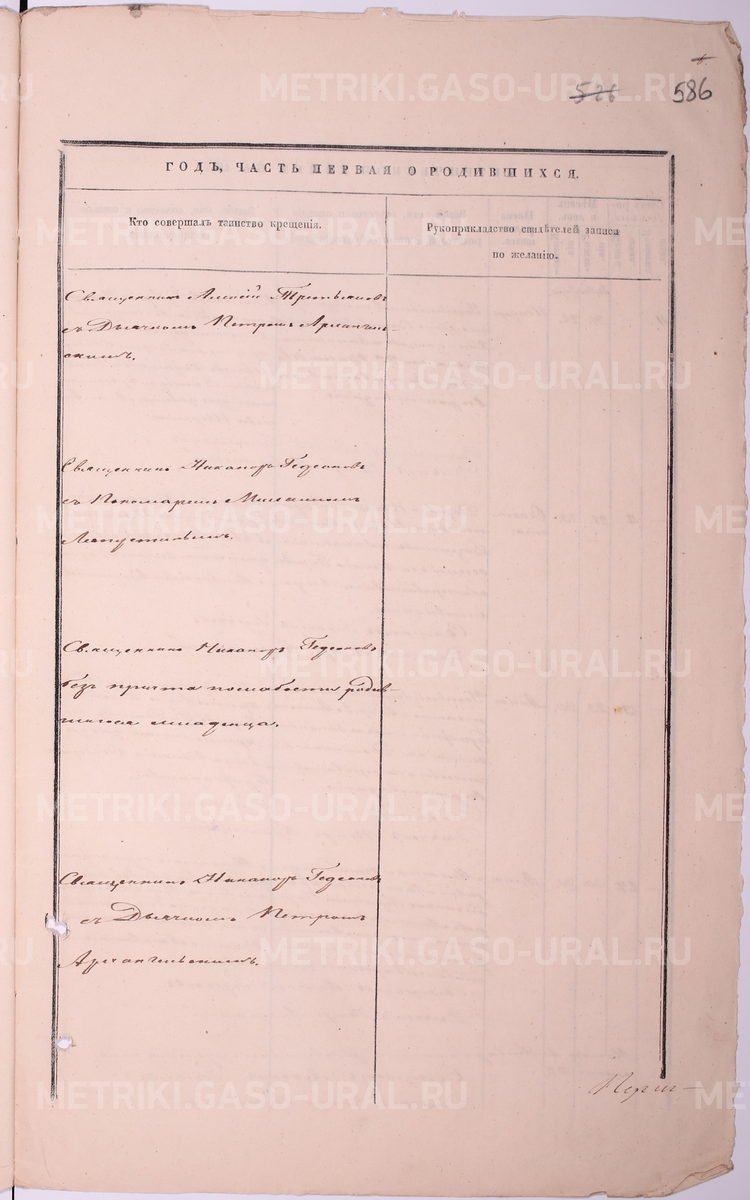 586
586
ГОДЪ, ЧАСТЬ ПЕРВАЯ О РОДИВШИХСЯ.
Кто совершалъ таинство крещенія.
Рукоприкладство свидѣтелей записи
по желанію.
Священникъ Алексій
съ Дьячкомъ Петромъ Архангель-
скимъ.
Священникъ Никаноръ Гедеоновъ
съ Пономаремъ
Священникъ Никаноръ Гедеоновъ
безъ причта послабости родив-
шагося младенца.
Священникъ Никаноръ Гедеоновъ
съ Дьячкомъ Петромъ
Архангельскимъ.
METRIKI.GASO-URAL.RU